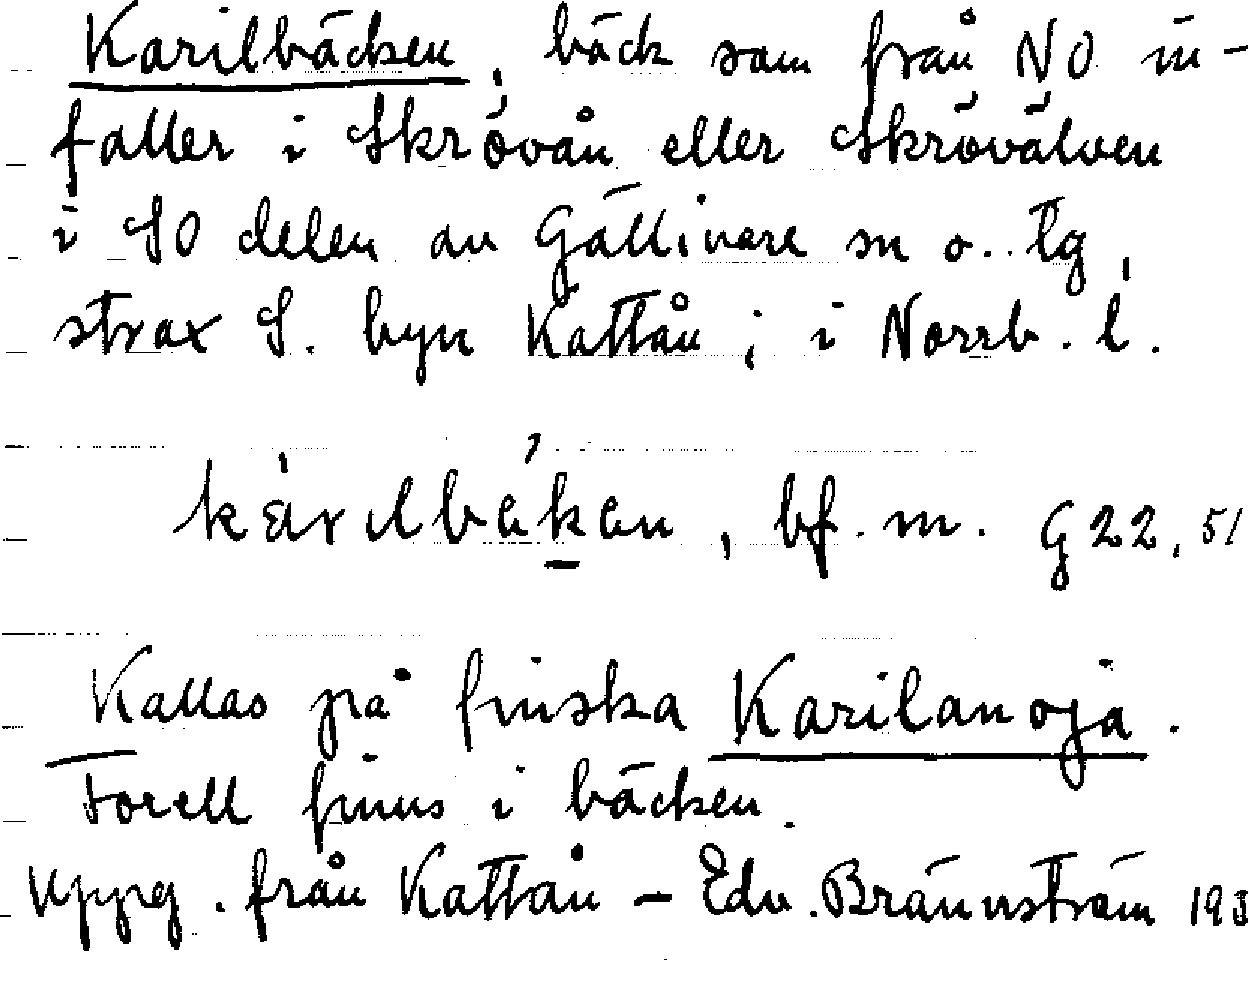 Karilbäcken, bäck som från NO in-
faller i Skrövån eller Skrövälven
i SO delen av Gällivare sn o. tg,
strax S. byn Kattån; i Norrb. l.
bf. m. G 22, 51
Kallas på finska Karilanoja.
Forell finns i bäcken.
Uppg. från Kattån - Edv. Brännström